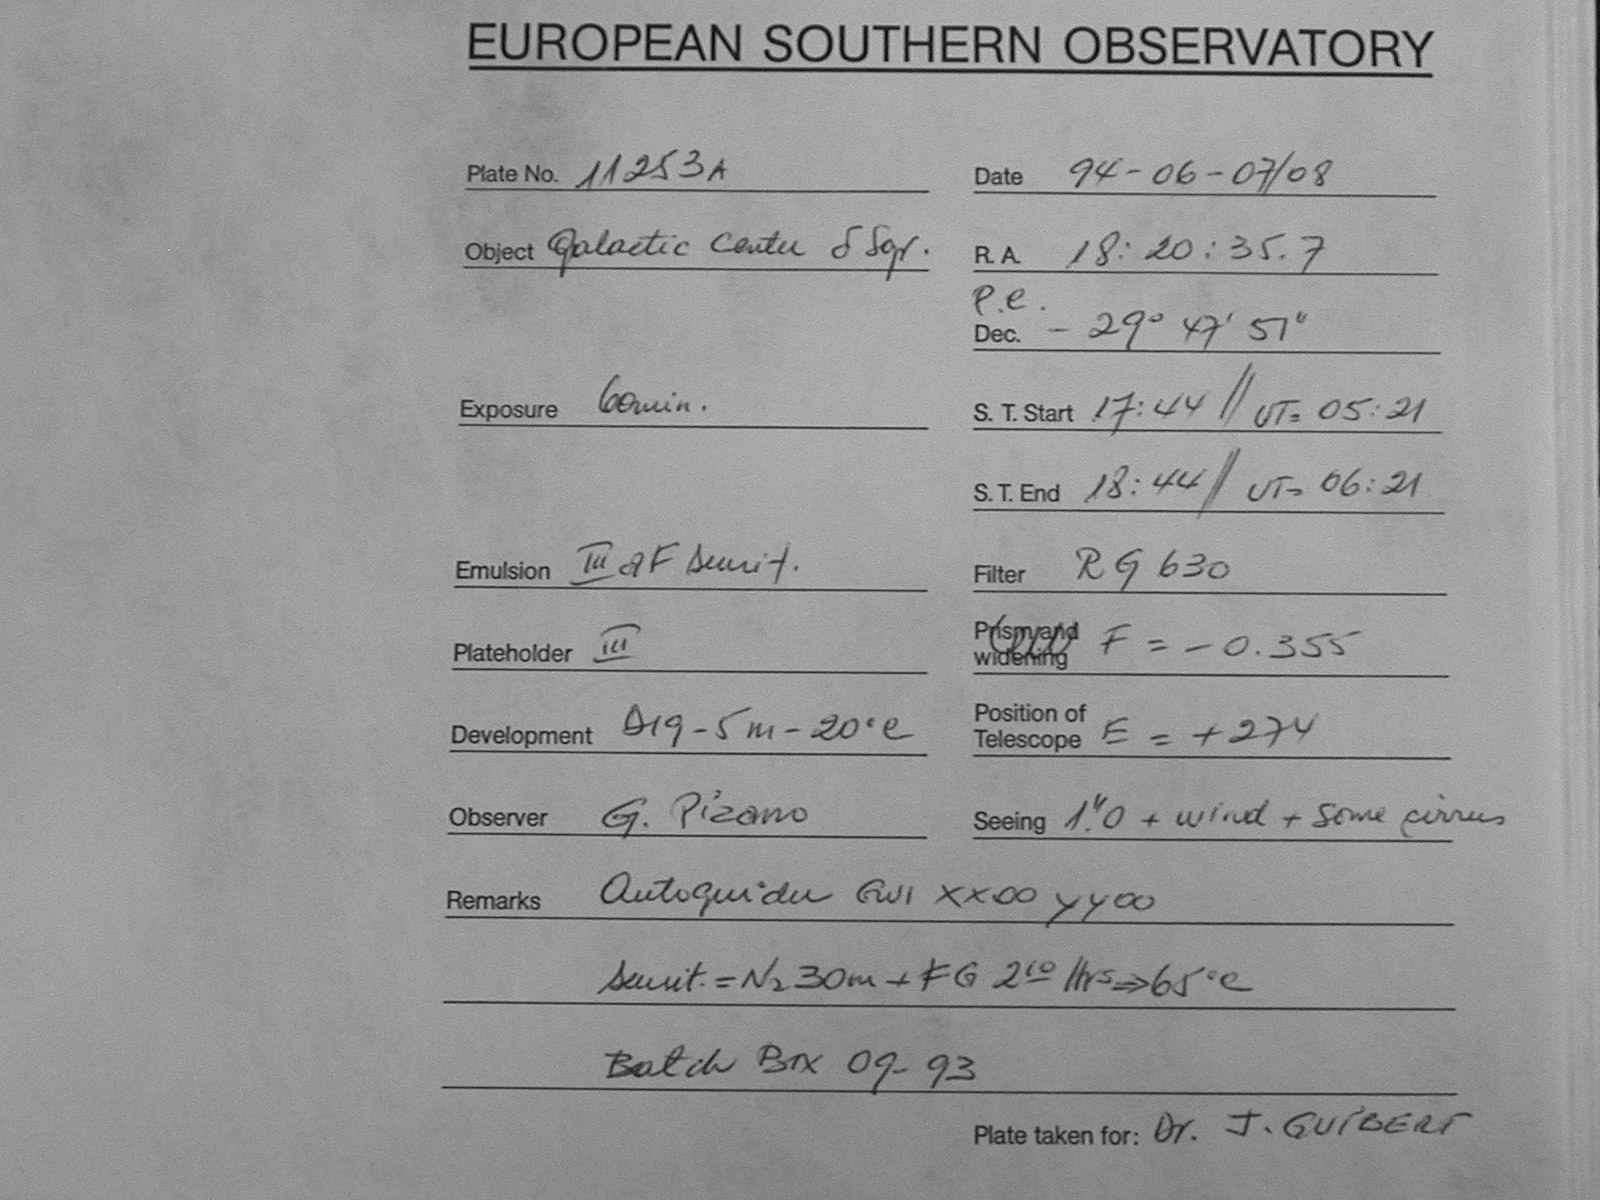 EUROPEAN SOUTHERN OBSERVATORY
Plate No. 11253A
Date 94-06-07/08
Object Galactic Center δ Sgr.
R. A. 18: 20: 35.7
P.e.
Dec. - 29° 47' 51"
Exposure 60min.
S. T. Start 17:44 // UT= 05:21
S. T. End 18:44 // UT= 06:21
Emulsion III aF Sensit.
Filter RG 630
Plateholder III
Prism and widening F = -0.355
Development D19-5m-20°C
Position of Telescope E = +274
Observer G. Pizarro
Seeing 1".0 + wind + some cirrus
Remarks Autoguider GW1 XX00 YY00
Sensit. = N2 30m + FG Hrs ⇒ 65°C
Batch Box 09-93
Plate taken for: Dr. J. GUIBERT